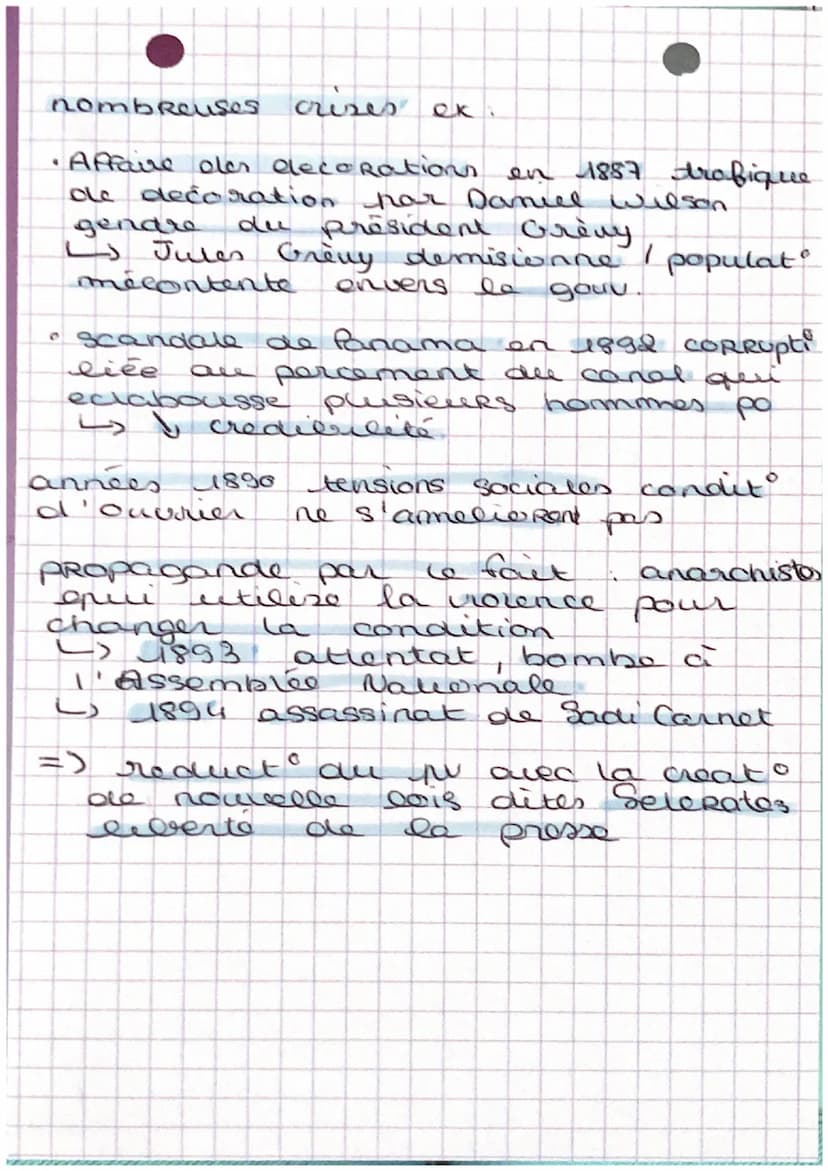 nombreuses crises ex :
• Affaire des decorations en 1887 trafique
de decoration par Daniel Wilson
gendre du président Grèvy
↳ Jules Grèvy demisionne / populat°
mécontente envers le gouv.
• scandale de Panama en 1892 corrupt°
liée au percement du canal qui
eclabousse plusieurs hommmes po
↳ ↘ credibilité
années 1890 tensions sociales condit°
d'ouvrier ne s'ammeliorent pas
propagande par le fait : anarchistes
qui utilise la violence pour
changer la condition
↳ 1893 attentat, bombe à
l'Assemblée Nationale
↳ 1894 assassinat de Sadi Carnot
=> reduct° du pv avec la creat°
de nouvelle lois dites Scelerates
liberté de la presse